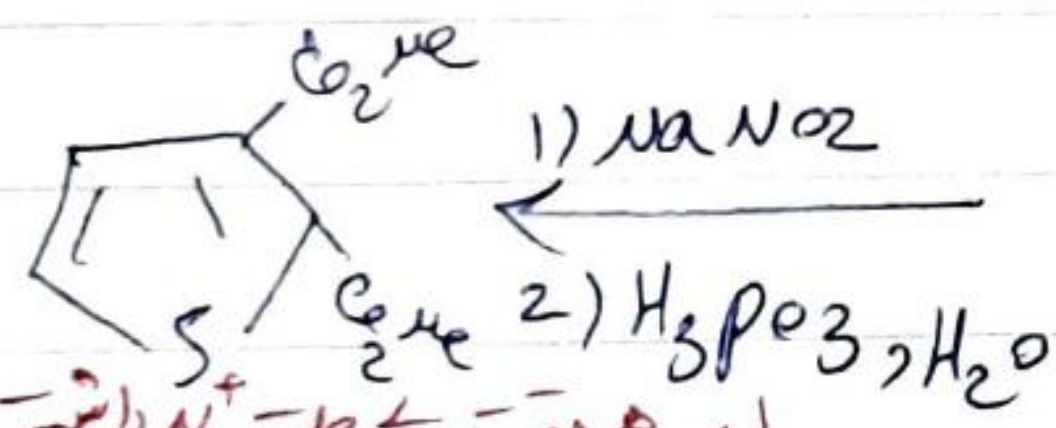 CO2Me
1) NaNO2
S
CO2Me
2) H3PO3, H2O